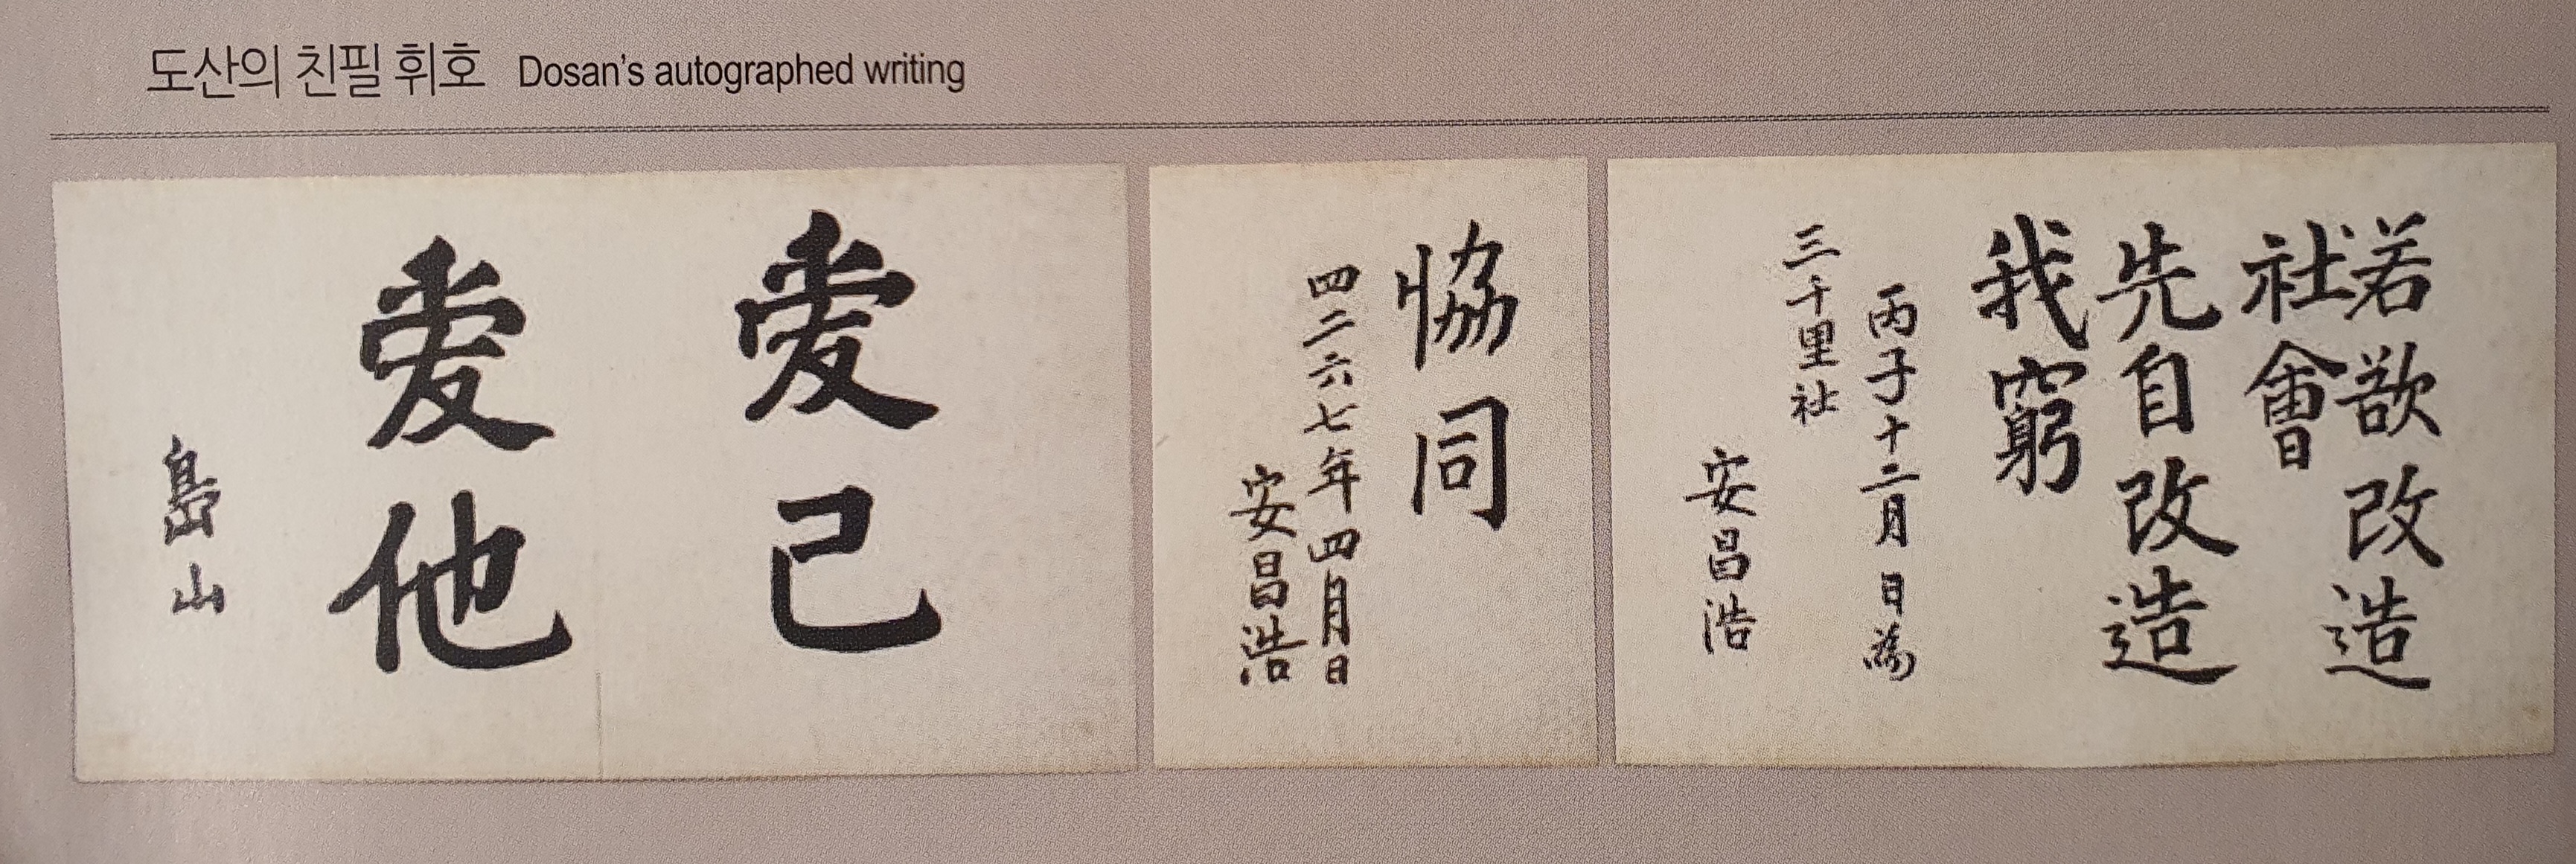 도산의 친필 휘호 Dosan's autographed writing
愛己
愛他
島山
恊同
四二六七年四月日
安昌浩
若欲改造
社會
先自改造
我窮
丙子十二月 日為
三千里社
安昌浩